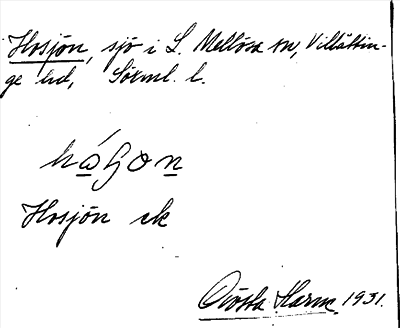 Hosjön, sjö i L. Mellösa sn, Villåttin-
ge hd, Sörml. l.
Hosjön ek
Gösta Harm. 1931.